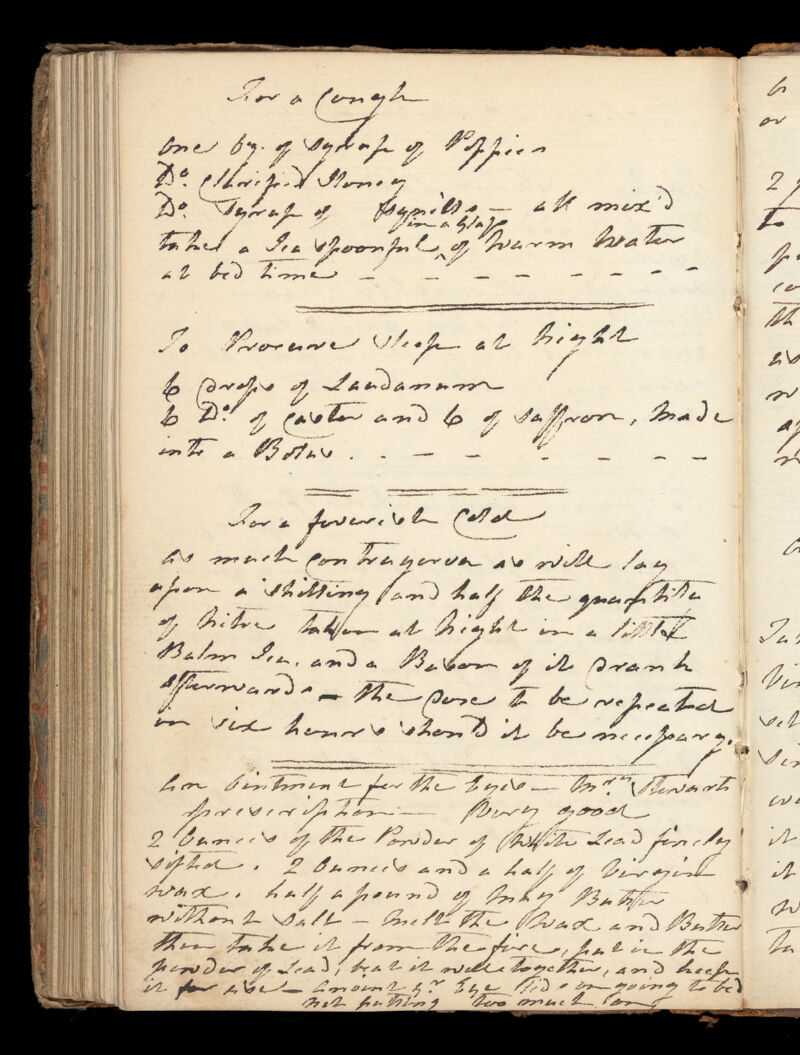 For a Cough
one oz. of Syrup of Poppies
Do. Clarified Honey
Do. Syrup of Squills — all mix'd
in a Glass
take a Tea spoonful ^ of Warm Water
at bed time — — — — — — — —
To Procure Sleep at Night
6 Drops of Laudanum
6 Do. of Castor and 6 of Saffron, Made
into a Bolus . . — — — — — —
For a feverish Cold
as much Contrayerva as will lay
upon a Shilling and half the quantity
of Nitre taken at Night in a little
Balm Tea, and a Bason of it Drank
afterwards — the Dose to be repeated
in Six hours should it be necessary.
An Ointment for the Eyes — Mrs. Stewarts
prescription — Very good
2 Ounces of the Powder of White Lead finely
sifted. 2 Ounces and a half of Virgin
wax. half a pound of May Butter
without Salt — Melt the Wax and Butter
then take it from the fire, put in the
powder of Lead, beat it well together, and keep
it for use — Anoint yr. Eye lids on going to bed
not putting too much on
or
2
to
th
as
it
it